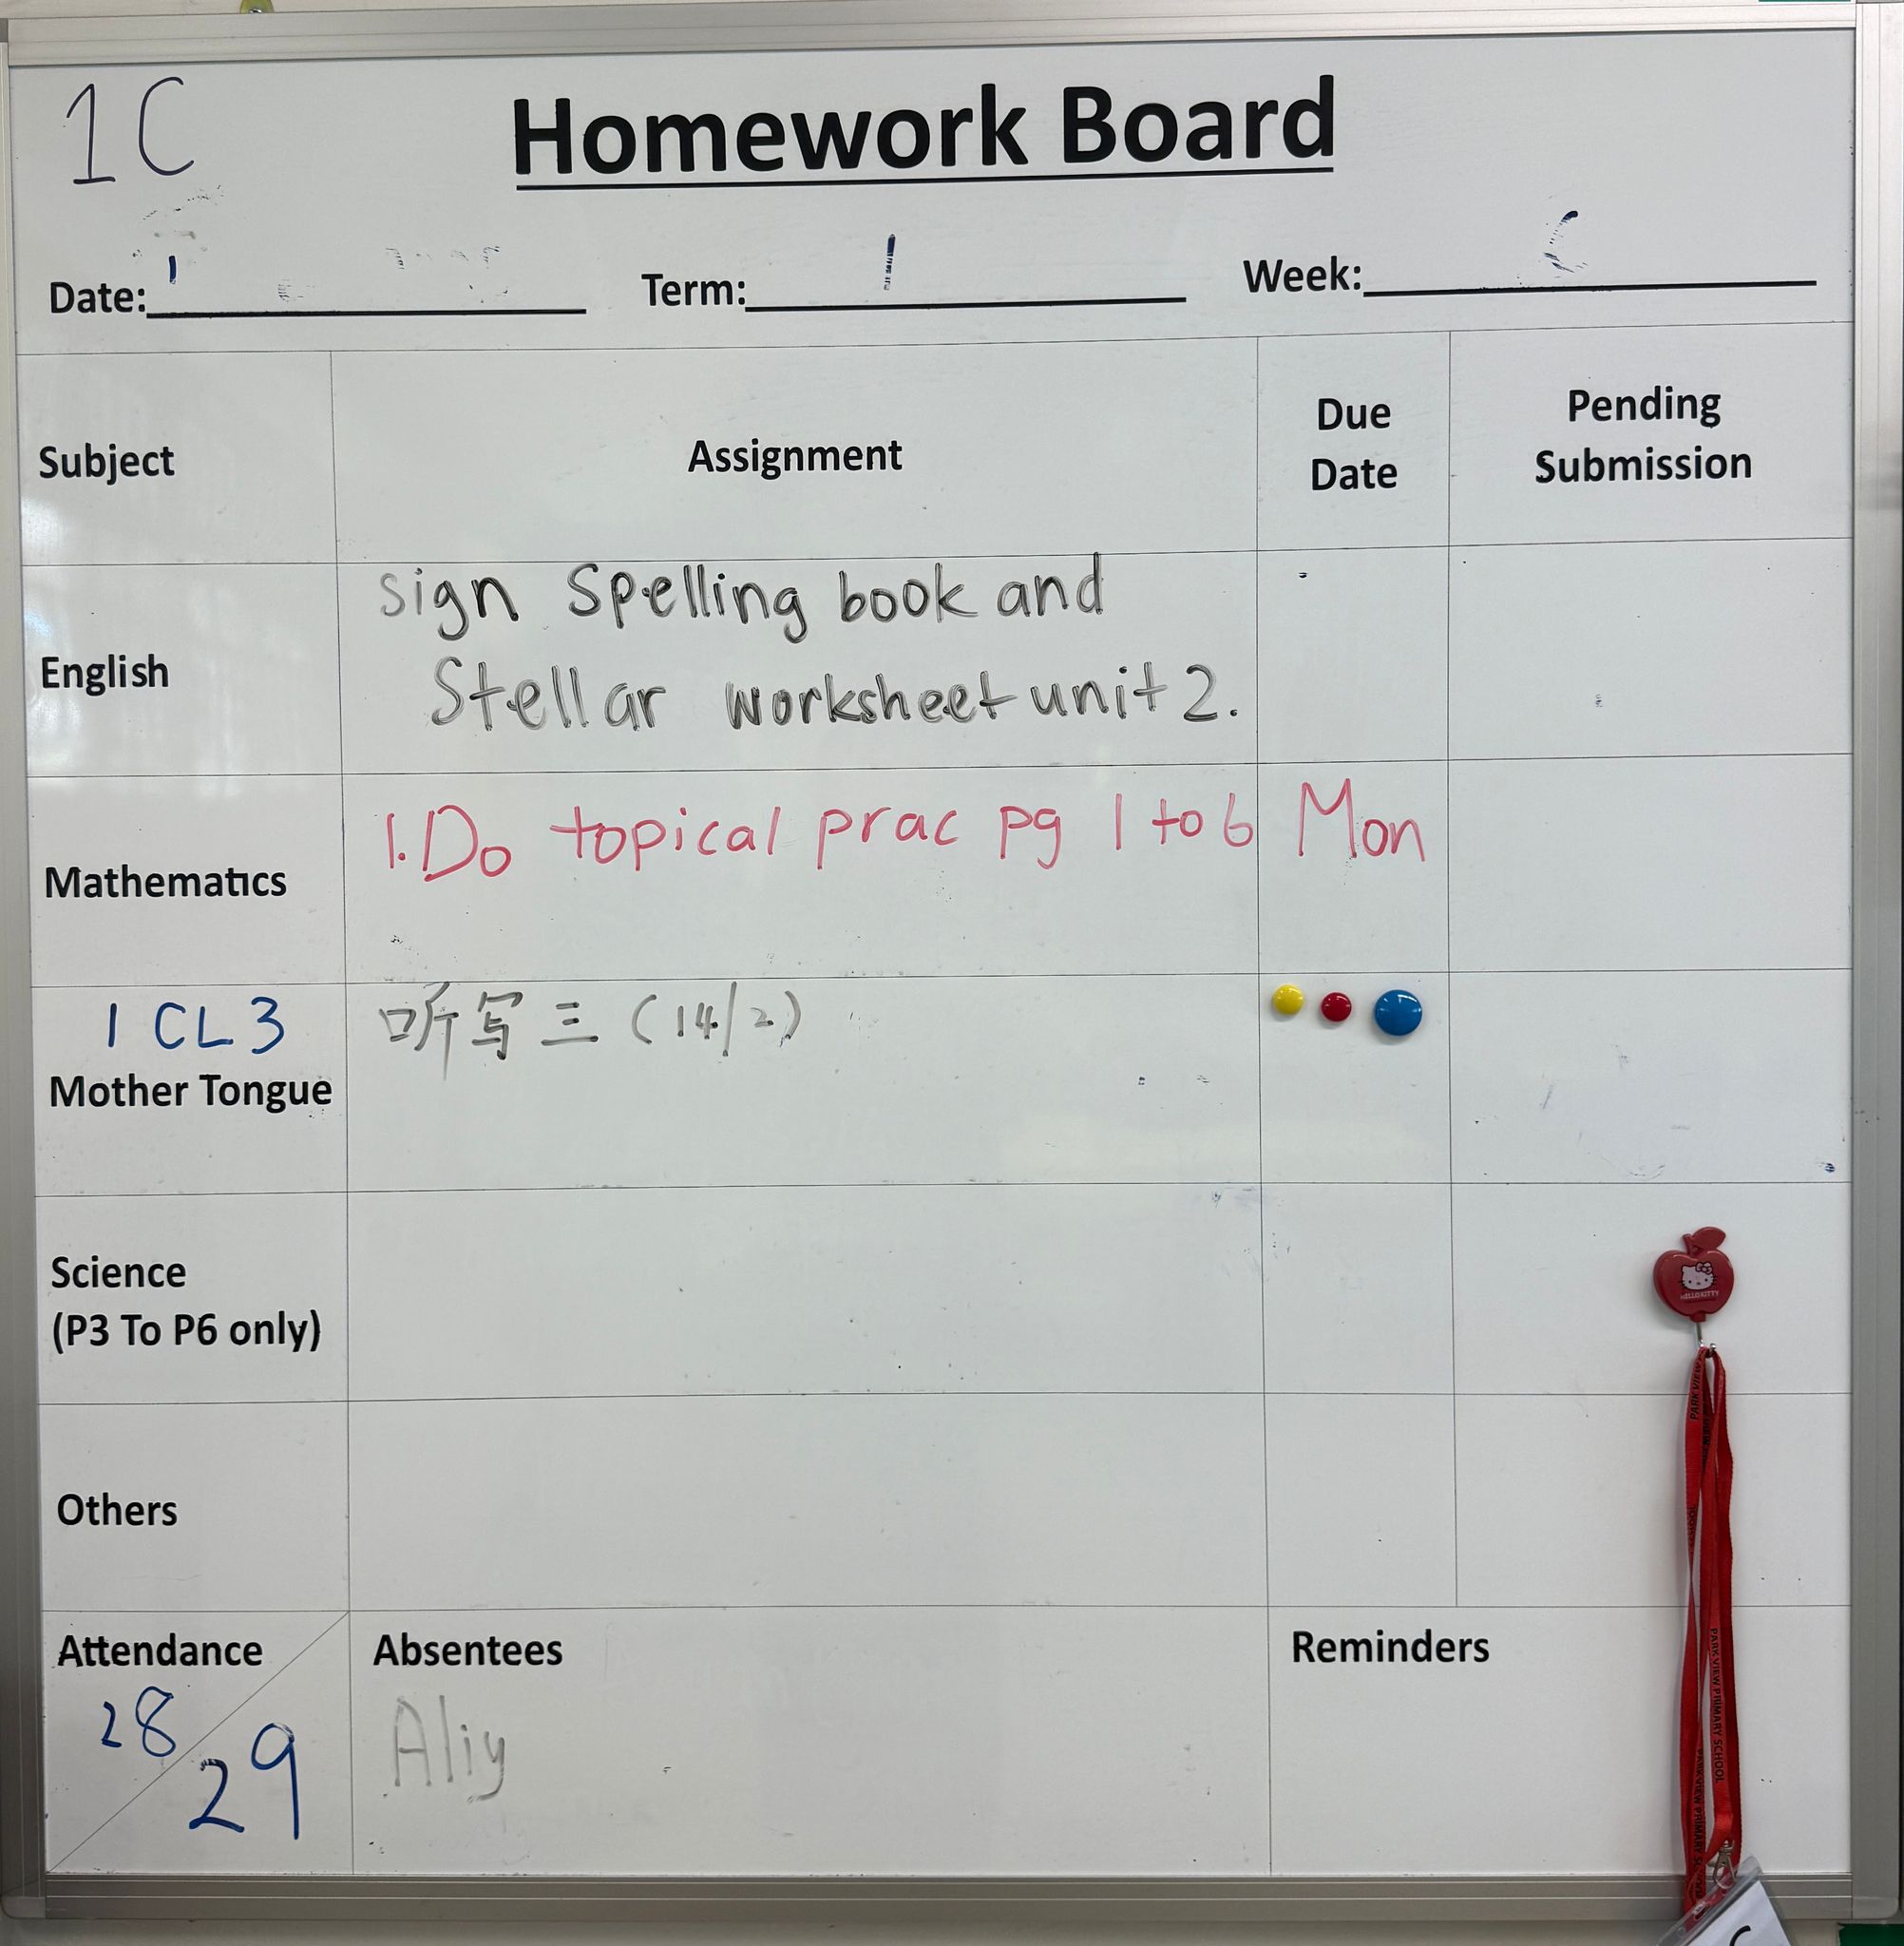 1C
Homework Board
Date: Term: 1 Week:
Subject Assignment Due Date Pending Submission
English
sign Spelling book and
Stellar worksheet unit 2.
Mathematics
1. Do topical prac pg 1 to 6 Mon
1 CL 3
Mother Tongue
听写三 (14/2)
Science
(P3 To P6 only)
HELLO KITTY
Others
Attendance
28
29
Absentees
Aliy
Reminders
PARK VIEW PRIMARY SCHOOL